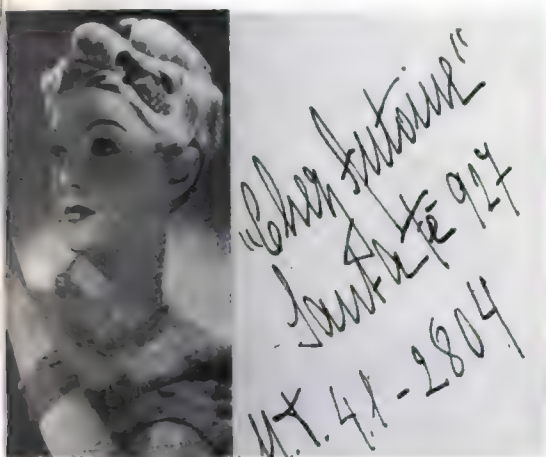 "Chez Antoine"
Santa Fé 927
U.T. 41-2804